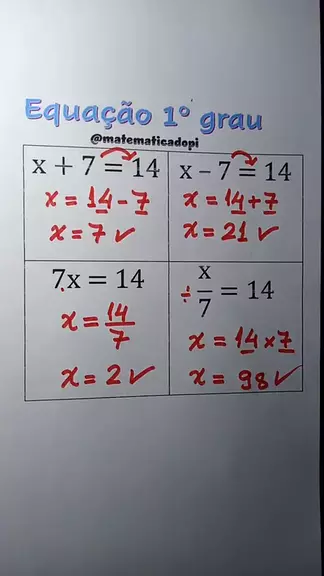 Equação 1° grau
@matematicadopi
x + 7 = 14
x = 14 - 7
x = 7 ✓
x – 7 = 14
x = 14 + 7
x = 21 ✓
7x = 14
x = 14/7
x = 2 ✓
÷ x/7 = 14
x = 14 × 7
x = 98 ✓